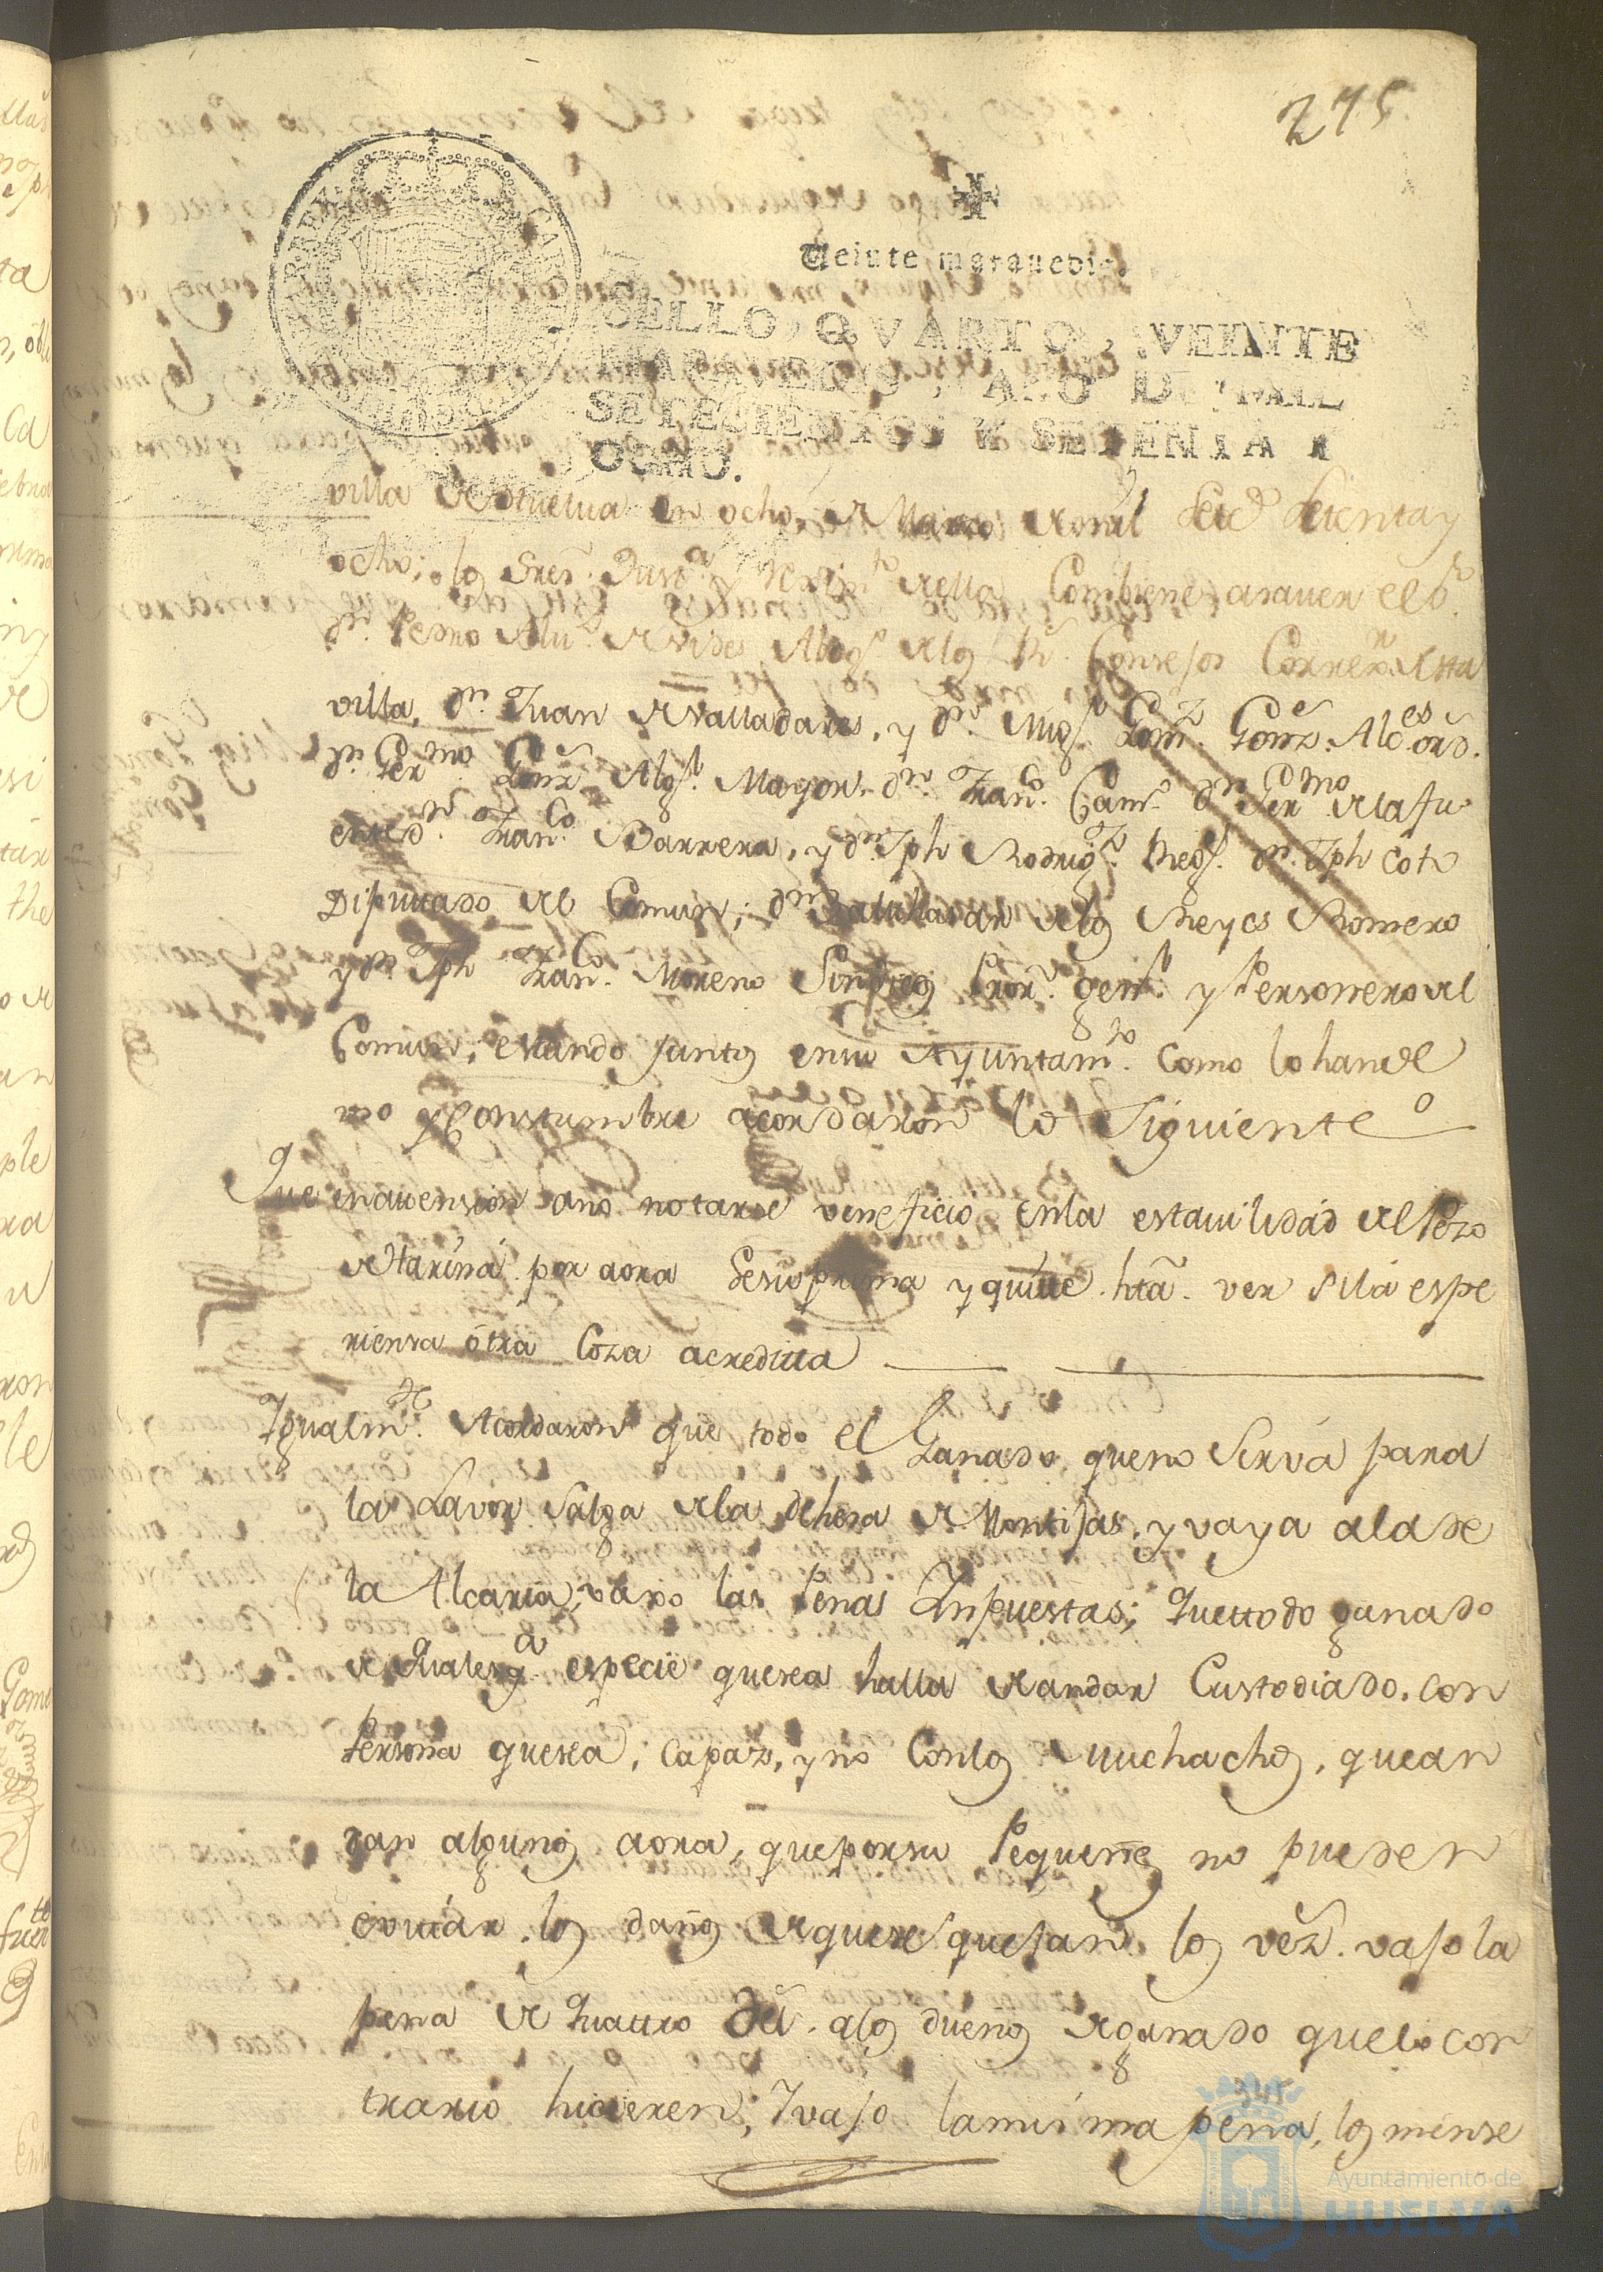 275
Veinte maravedis.
SELLO QVARTO, VEINTE
MARAVEDIS, AÑO DE MIL
SETECIENTOS Y SETENTA Y
OCHO.
villa de Huelua en ocho de Marzo de mil Setᵒˢ Setenta y
ocho; los Sres. Justᵃ y Regimᵗᵒ de ella Combiene a saver el Sʳ
Dⁿ. Pedro de Vides Abogᵈᵒ de los Rˢ. Consejos Corregᵒʳ de esta
villa, Dⁿ. Juan de Valladares, y Dⁿ. Migˡ Gomᶻ Gonz. Alcᵉˢ ordˢ.
Dⁿ Gerᵐᵒ Gonz Algˡ. Mayor. Dⁿ. Franᶜᵒ. Gamᶻ. Dⁿ Germᵒ de la fu
ente Dⁿ. Franᶜᵒ. Barrera, y Dⁿ. Jph Rodrigᶻ. Regˢ. Dⁿ. Jph Coto
Diputado del Comun; Dⁿ Balthasar de los Reyes Romero
y Dⁿ. Jph Franᶜᵒ. Moreno Sindicos Prorˢ. genˡ. y Personero del
Comun; estando juntos en su Ayuntamᵗᵒ. como lo han de
uso y Constumbre acordaron lo Siguiente
Que en atension a no notarse veneficio en la estavilidad del Pozo
de Harina por aora se suprima y quitte. htā. ver si la espe
riensa otra Coza acreditta
Igualmᵗᵉ. Acordaron que todo el Ganado que no Serva para
la Lavor Salga de la dehesa de Montijas, y vaya a la de
la Alcaria, vaxo las Penas Ynpuestas; Que todo ganado
de qualesqᵃ especie que sea halla de andar Custodiado, con
Persona que sea, capaz, y no Con los muchachos, que an
dan algunos aora, que por su Pequeñes no pueden
evitar los daños de que se quejan los vezˢ. vajo la
pena de quatro Dū. a los dueños de ganado que lo con
trario hicieren; Y vajo la misma pena, los mense
345
Ayuntamiento de
HUELVA